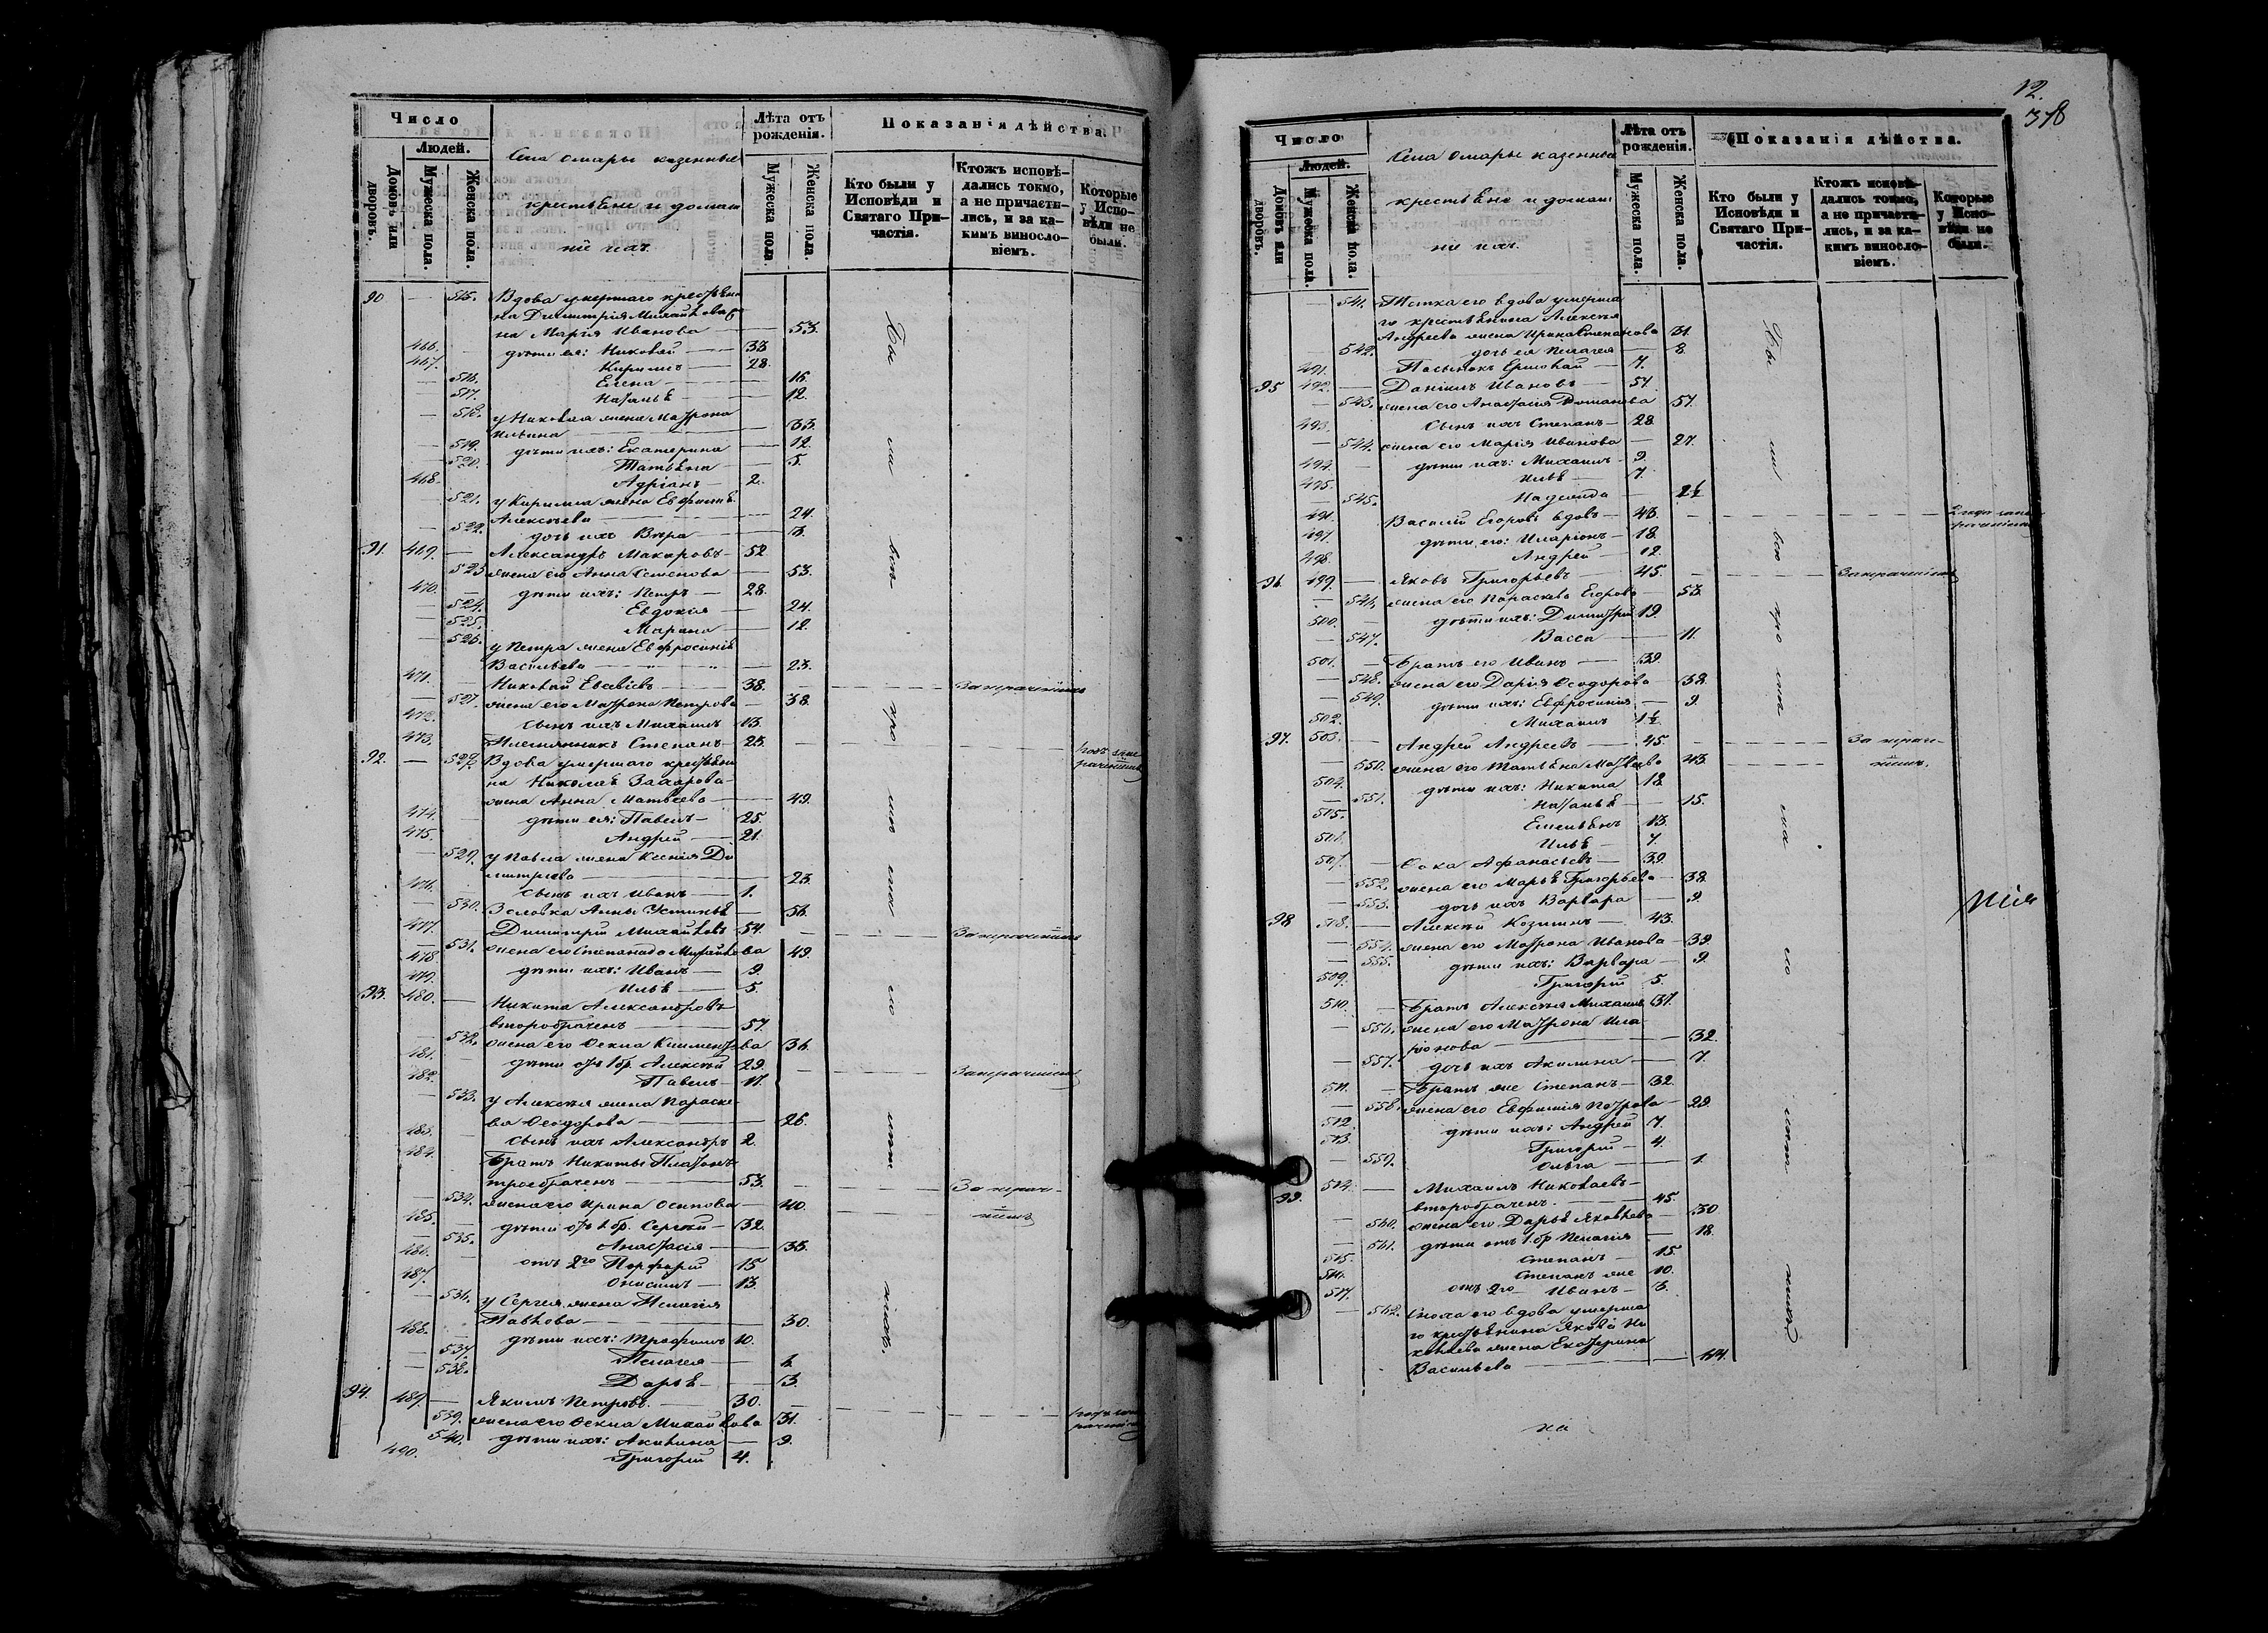 Число
Людей.
Домовъ или дворовъ.
Мужеска пола.
Женска пола.
Села Омары казенные
крестьяне и домаш
ніе ихъ.
Лѣта отъ рожденія.
Мужеска пола.
Женска пола.
Показанія дѣйства.
Кто были у Исповѣди и Святаго Причастія.
Ктожъ исповѣдались токмо, а не причастились, и за какимъ винословіемъ.
Которые у Исповѣди не были.
90 — 515. Вдова умершаго крестьяни
на Димитрія Михайлова
на Марія Иванова — 53.
466. дѣти ея: Николай — 33
467. Кириллъ — 28.
— 516. Елена — 16.
— 517. Наталья — 12.
— 518. у Николая жена Матрона
Ильина — 33.
— 519. дѣти ихъ: Екатерина — 12.
— 520. Татьяна — 5.
468. Адріанъ — 2.
521. у Кирилла жена Евфимія
Алексѣева — 24.
— 522. дочь ихъ Вѣра — 3.
91. 469. — Александръ Макаровъ — 52
523 жена его Анна Семенова — 53.
470. дѣти ихъ: Петръ — 28.
— 524. Евдокія — 24.
— 525. Марина — 12.
— 526. у Петра жена Евфросинія
Васильева — 23.
471. Николай Евсевіевъ — 38. — за нерачен.
— 527 жена его Матрона Петрова — 38.
472. сынъ ихъ Михаилъ 13.
473. Племянникъ Степанъ 25.
92. — 529. Вдова умершаго крестьяни
на Николая Захарова
жена Анна Матвѣева — 49.
474. дѣти ея: Павелъ — 25.
475. Андрей — 21.
— 529. у Павла жена Ксенія Ди
митріева — 23.
476. сынъ ихъ Иванъ — 1.
— 530. Золовка Анны Устинья — 56.
477. Димитрій Михайловъ 54. — за нераченіемъ
— 531. жена его Степанида Михайлова 49.
478. дѣти ихъ: Иванъ — 9.
479. Илья — 5.
93. 480. — Никита Александровъ
второбраченъ — 57.
— 532. жена его Фекла Климентова 36.
481. дѣти отъ 1 бр. Алексѣй 29.
482. Павелъ — 17. — за нераченіемъ
— 533. у Алексѣя жена Параске
ва Ѳеодорова — 26.
483. сынъ ихъ Александръ 2.
484. Братъ Никиты Платонъ
троебраченъ — 53.
— 534. жена его Ирина Осипова — 40. — за нерач-
ніемъ
485. дѣти отъ 1 бр. Сергѣй — 32.
— 535. Анастасія — 33.
486. отъ 2го Порфирій 15
487. Онисимъ — 13.
— 536. у Сергѣя жена Пелагія
Павлова — 30.
488. дѣти ихъ: Трофимъ 10.
— 537. Пелагея — 6.
— 538. Дарья — 3.
94. 489. — Якимъ Петровъ — 30.
539. жена его Фекла Михайлова 31.
540. дѣти ихъ: Акилина — 9.
490. Григорій 4.
12.
378
Число
Людей.
Домовъ или дворовъ.
Мужеска пола.
Женска пола.
Села Омары казенные
крестьяне и домаш
ніе ихъ.
Лѣта отъ рожденія.
Мужеска пола.
Женска пола.
Показанія дѣйства.
Кто были у Исповѣди и Святаго Причастія.
Ктожъ исповѣдались токмо, а не причастились, и за какимъ винословіемъ.
Которые у Исповѣди не были.
— 541. Тетка его вдова умерша
го крестьянина Алексѣя
Андреева жена Ирина Степанова 31.
— 542. дочь ея Пелагея — 8.
491. Пасынокъ Ермолай — 7.
95 492. — Даніилъ Ивановъ — 57.
— 543. жена его Анастасія Романова 57.
493. сынъ ихъ Степанъ — 28
— 544. жена его Марія Иванова — 27.
494. дѣти ихъ: Михаилъ — 9.
495. Илья — 7.
— 545. Надежда — 2½
Василій Егоровъ вдовъ — 43.
497. дѣти его: Иларіонъ — 18.
498. Андрей — 12.
96. 499. — Яковъ Григорьевъ — 45. — за нераченіемъ
— 546. жена его Параскева Егорова — 53.
500. дѣти ихъ: Димитрій 19.
— 547. Васса — 11.
501. — Братъ его Иванъ — 39.
— 548. жена его Дарія Ѳеодорова — 38.
— 549. дѣти ихъ: Евфросинія — 9.
502. Михаилъ 1½
97. 503. — Андрей Андреевъ — 45. — за нерач-
— 550. жена его Татьяна Матвѣева 43. — ніемъ.
504. дѣти ихъ: Никита 18
— 551. Наталья — 15.
505. Емельянъ 13.
506. Илья — 7.
507. — Фока Афанасьевъ — 39.
— 552. жена его Марья Григорьева — 38.
— 553. дочь ихъ Варвара — 9.
98 508. — Алексѣй Козминъ — 43.
— 554. жена его Матрона Иванова — 39.
— 555. дѣти ихъ: Варвара — 9.
509. Григорій 5.
510. — Братъ Алексѣя Михаилъ 37.
— 556. жена его Матрона Ила
ріонова — 32.
— 557. дочь ихъ Акилина — 7.
511. — Братъ же Степанъ — 32.
— 558. жена его Евфимія Петрова — 29.
512. дѣти ихъ: Андрей 7.
513. Григорій — 4.
— 559. Ольга — 1.
99. 514. — Михаилъ Николаевъ
второбраченъ — 45.
— 560. жена его Дарья Яковлева — 30
— 561. дѣти отъ 1. бр Пелагія — 18.
515. Степанъ — 15.
516. Степанъ же 10.
517. отъ 2го Иванъ — 3.
— 562. Сноха его вдова умерша
го крестьянина Якова Ни
колаева жена Екатерина
Васильева — 44.